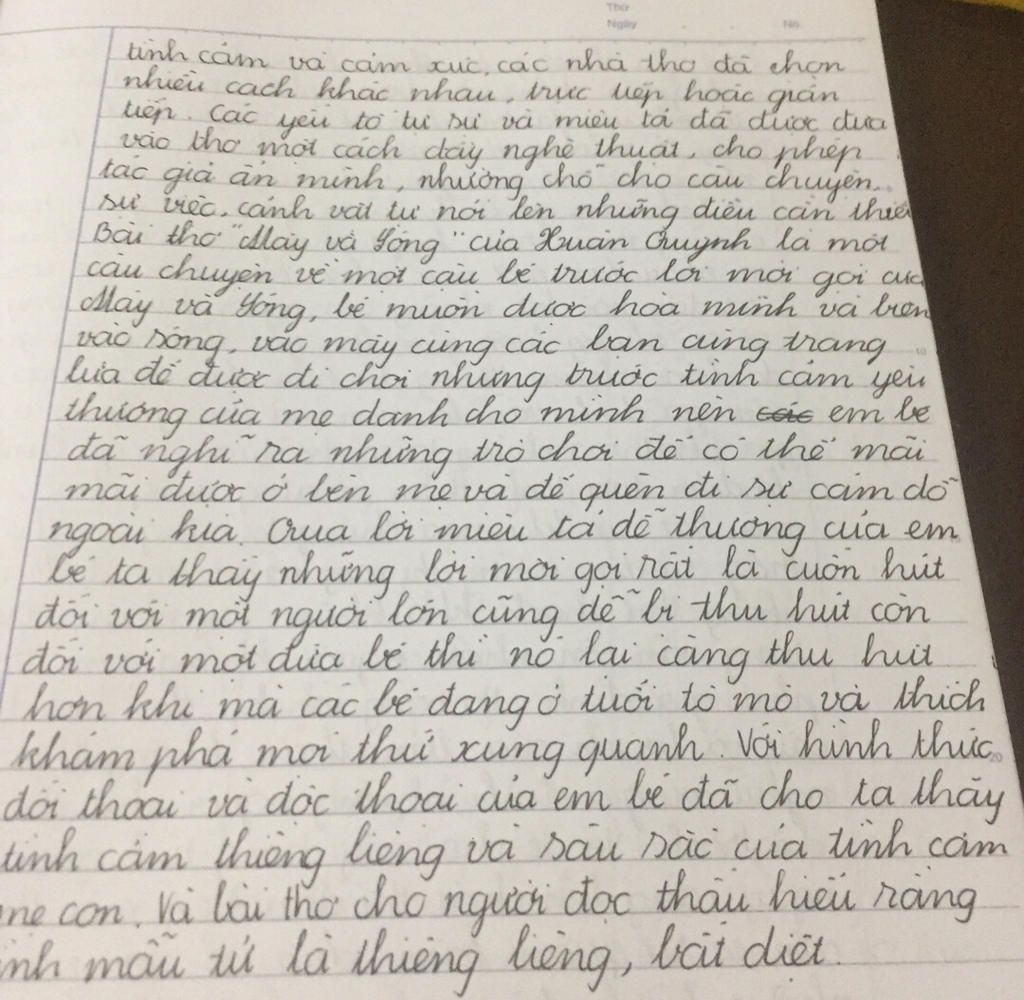 Thứ
Ngày No.
tình cảm và cảm xúc, các nhà thơ đã chọn
nhiều cách khác nhau, trực tiếp hoặc gián
tiếp. Các yếu tố tự sự và miêu tả đã được đưa
vào thơ một cách đầy nghệ thuật, cho phép
tác giả ẩn mình, nhường chỗ cho câu chuyện,
sự việc, cảnh vật tự nói lên những điều cần thiết
Bài thơ "Mây và Sóng" của Xuân Quỳnh là một
câu chuyện về một cậu bé trước lời mời gọi của
Mây và Sóng, bé muốn được hòa mình và biến
vào sóng, vào mây cùng các bạn cùng trang
lứa để được đi chơi nhưng trước tình cảm yêu
thương của mẹ dành cho mình nên các em bé
đã nghĩ ra những trò chơi để có thể mãi
mãi được ở bên mẹ và để quên đi sự cám dỗ
ngoài kia. Qua lời miêu tả dễ thương của em
bé ta thấy những lời mời gọi rất là cuốn hút
đối với một người lớn cũng dễ bị thu hút còn
đối với một đứa bé thì nó lại càng thu hút
hơn khi mà các bé đang ở tuổi tò mò và thích
khám phá mọi thứ xung quanh. Với hình thức
đối thoại và độc thoại của em bé đã cho ta thấy
tình cảm thiêng liêng và sâu sắc của tình cảm
mẹ con. Và bài thơ cho người đọc thấu hiểu rằng
ình mẫu tử là thiêng liêng, bất diệt.